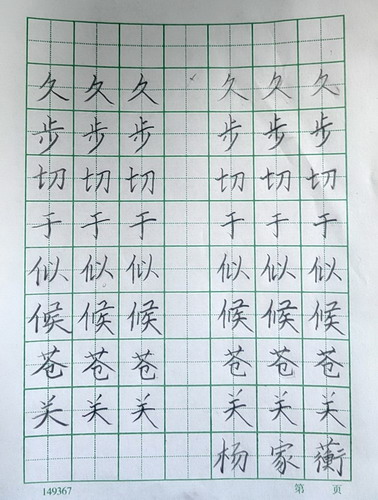 久久久 久久久
步步步 步步步
切切切 切切切
于于于 于于于
似似似 似似似
候候候 候候候
苍苍苍 苍苍苍
关关关 关关关
杨家蘅
149367 第 页